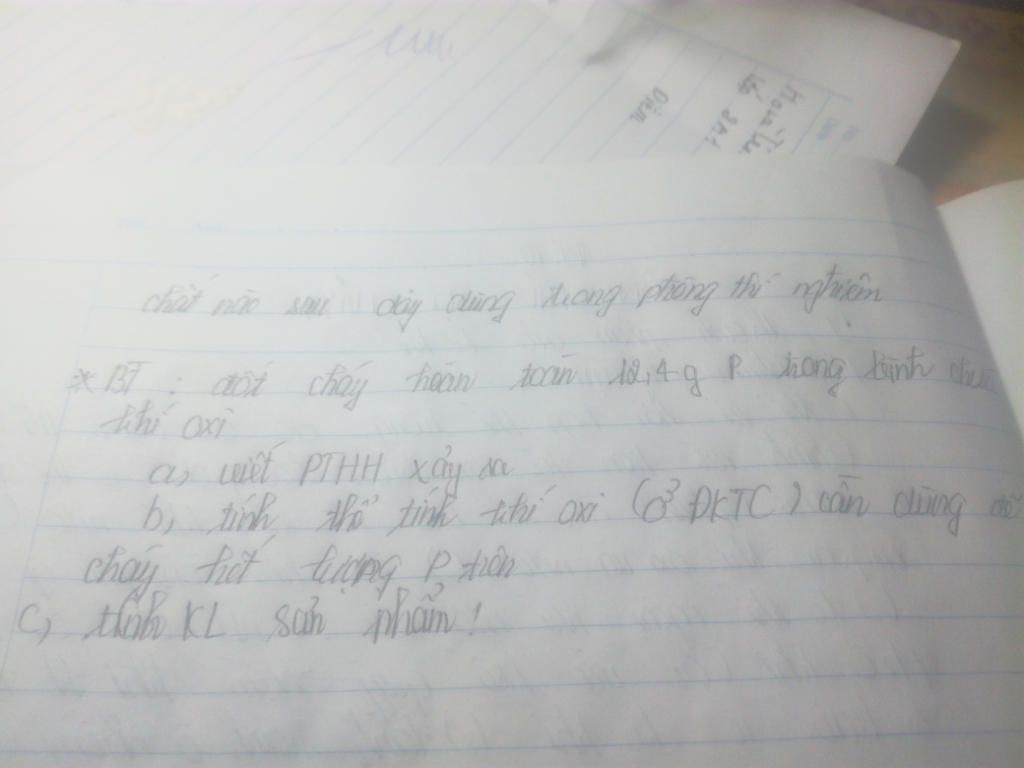 Lớp 8A1
Điểm
chất nào sau đây dùng trong phòng thí nghiệm
* BT : đốt cháy hoàn toàn 12,4 g P trong bình chứa
khí oxi
a, viết PTHH xảy ra
b, tính thể tính khí oxi (ở ĐKTC) cần dùng để
cháy hết lượng P trên
c, tính KL sản phẩm !